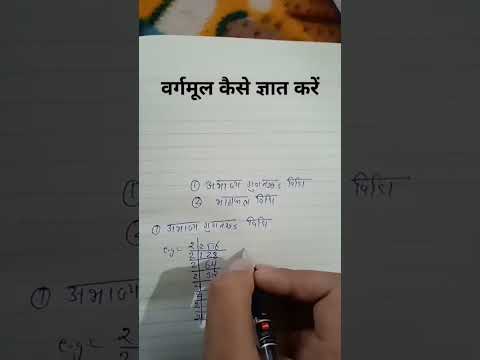 वर्गमूल कैसे ज्ञात करें
① अभाज्य गुणनखंड विधि
② भागफल विधि
① अभाज्य गुणनखंड विधि
e.g= 2 256
2 128
2 64
2
2